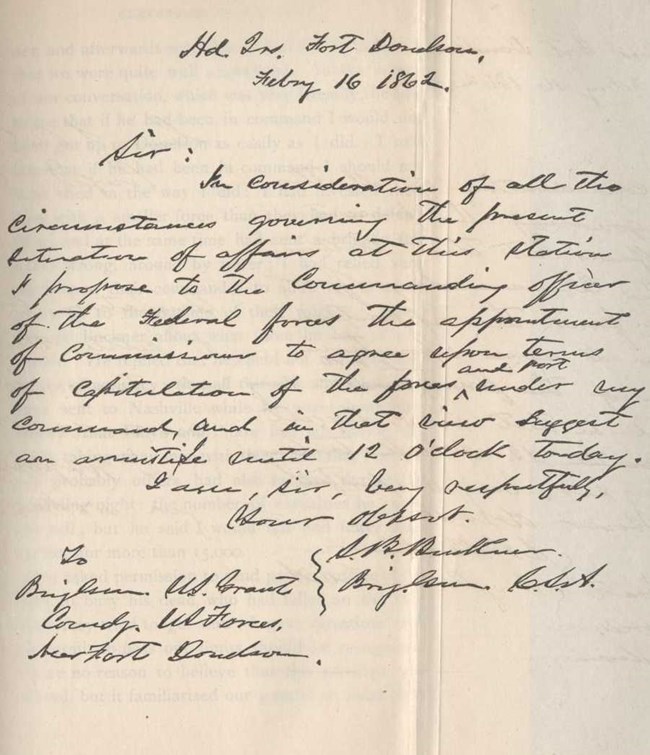 Hd. Qrs. Fort Donelson,
Febry 16 1862.
Sir:
In consideration of all the
circumstances governing the present
situation of affairs at this station
I propose to the Commanding officer
of the Federal forces the appointment
of Commissioners to agree upon terms
of capitulation of the forces and fort under my
command, and in that view suggest
an armistice until 12 o'clock today.
I am, sir, very respectfully,
Your obt svt.
S. B. Buckner
Brig. Gen. C.S.A.
To
Brig Gen. U.S. Grant
Comdg. US Forces,
Near Fort Donelson.